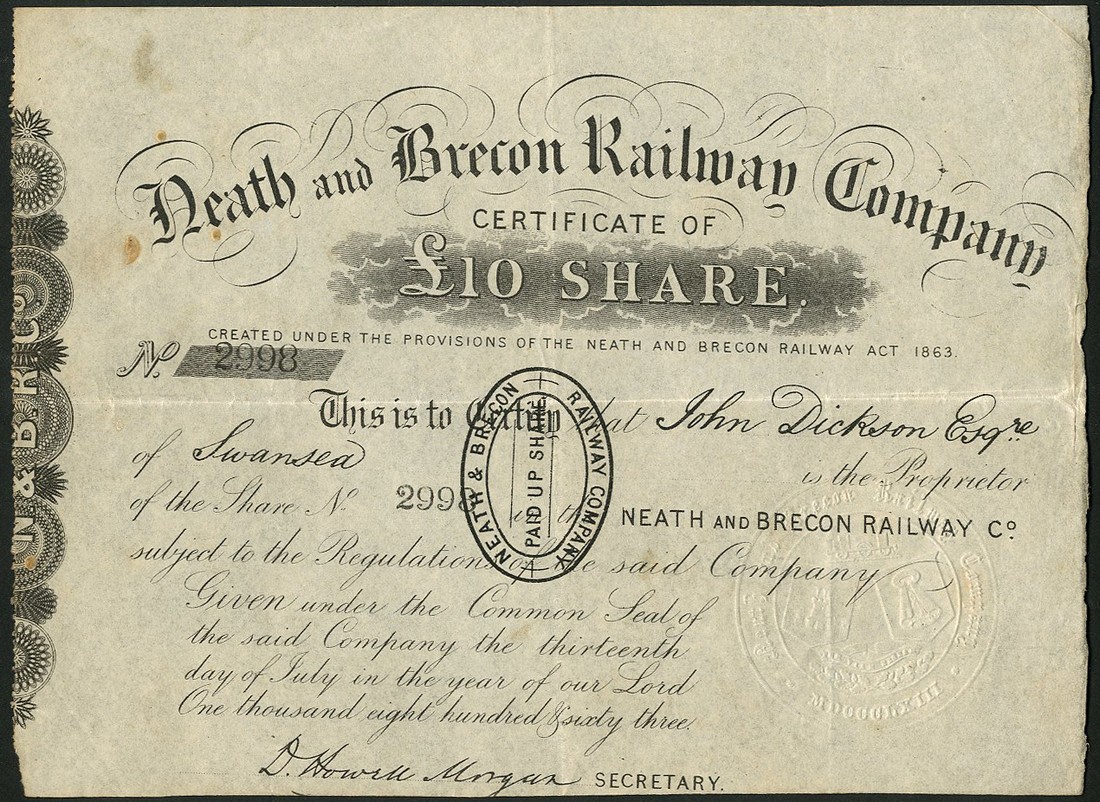 Neath and Brecon Railway Company
CERTIFICATE OF
£10 SHARE.
CREATED UNDER THE PROVISIONS OF THE NEATH AND BRECON RAILWAY ACT 1863.
No. 2998
This is to Certify that John Dickson Esqre
of Swansea is the Proprietor
of the Share No. 2998 in the NEATH AND BRECON RAILWAY Co.
subject to the Regulations of the said Company
Given under the Common Seal of
the said Company the thirteenth
day of July in the year of our Lord
One thousand eight hundred & sixty three.
D. Howell Morgan SECRETARY.
NEATH & BRECON RAILWAY COMPANY
PAID UP SHARE
N & B. R. Co.
MDCCCLXIII